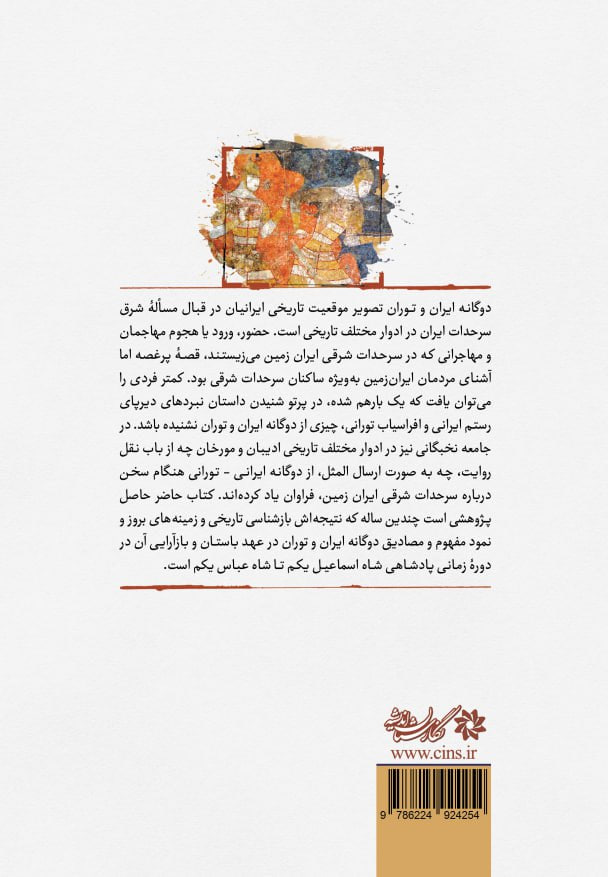 دوگانه ایران و توران تصویر موقعیت تاریخی ایرانیان در قبال مسألهٔ شرق
سرحدات ایران در ادوار مختلف تاریخی است. حضور، ورود یا هجوم مهاجمان
و مهاجرانی که در سرحدات شرقی ایران زمین می‌زیستند، قصهٔ پرغصه اما
آشنای مردمان ایران‌زمین به‌ویژه ساکنان سرحدات شرقی بود. کمتر فردی را
می‌توان یافت که یک بارهم شده، در پرتو شنیدن داستان نبردهای دیرپای
رستم ایرانی و افراسیاب تورانی، چیزی از دوگانه ایران و توران نشنیده باشد. در
جامعه نخبگانی نیز در ادوار مختلف تاریخی ادیبان و مورخان چه از باب نقل
روایت، چه به صورت ارسال المثل، از دوگانه ایرانی - تورانی هنگام سخن
درباره سرحدات شرقی ایران زمین، فراوان یاد کرده‌اند. کتاب حاضر حاصل
پژوهشی است چندین ساله که نتیجه‌اش بازشناسی تاریخی و زمینه‌های بروز و
نمود مفهوم و مصادیق دوگانه ایران و توران در عهد باستان و بازآرایی آن در
دورهٔ زمانی پادشاهی شاه اسماعیل یکم تا شاه عباس یکم است.
نگارستان اندیشه
www.cins.ir
9 786224 924254